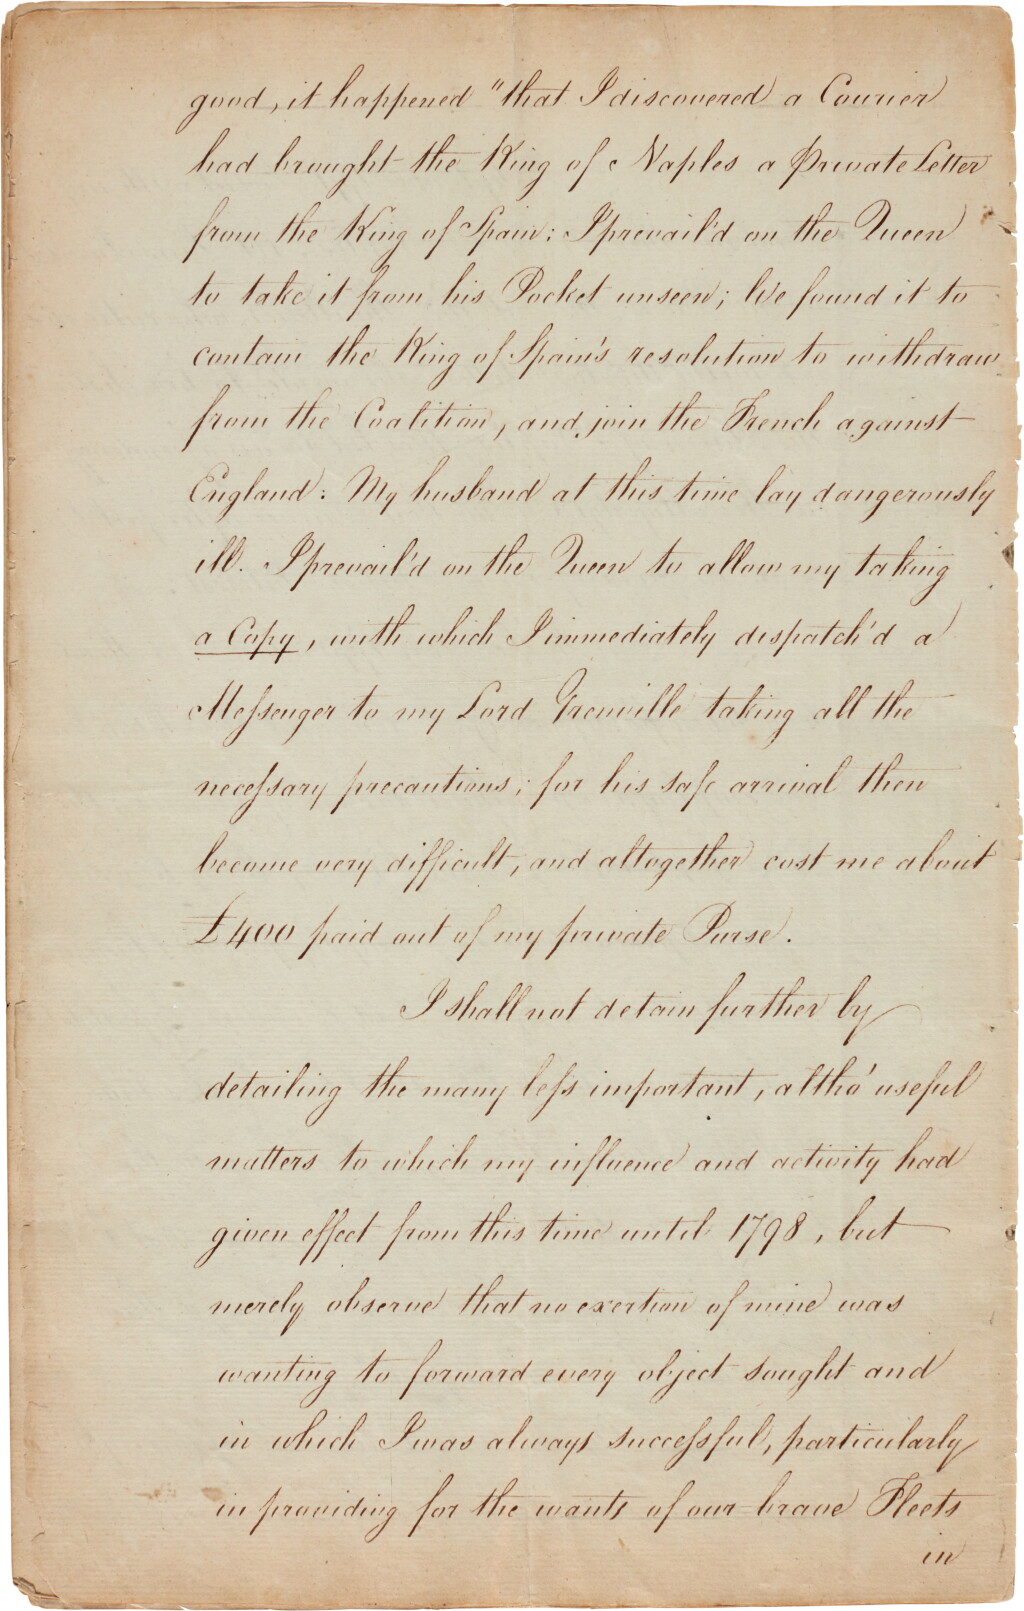 good, it happened "that I discovered a Courier
had brought the King of Naples a Private Letter
from the King of Spain: I prevail'd on the Queen
to take it from his Pocket unseen; We found it to
contain the King of Spain's resolution to withdraw
from the Coalition, and join the French against
England: My husband at this time lay dangerously
ill. I prevail'd on the Queen to allow my taking
a Copy, with which I immediately dispatch'd a
Messenger to my Lord Grenville taking all the
necessary precautions; for his safe arrival then
become very difficult, and altogether cost me about
£400 paid out of my private Purse.
I shall not detain further by
detailing the many less important, altho' useful
matters to which my influence and activity had
given effect from this time until 1798, but
merely observe that no exertion of mine was
wanting to forward every object sought and
in which I was always successful, particularly
in providing for the wants of our brave Fleets
in